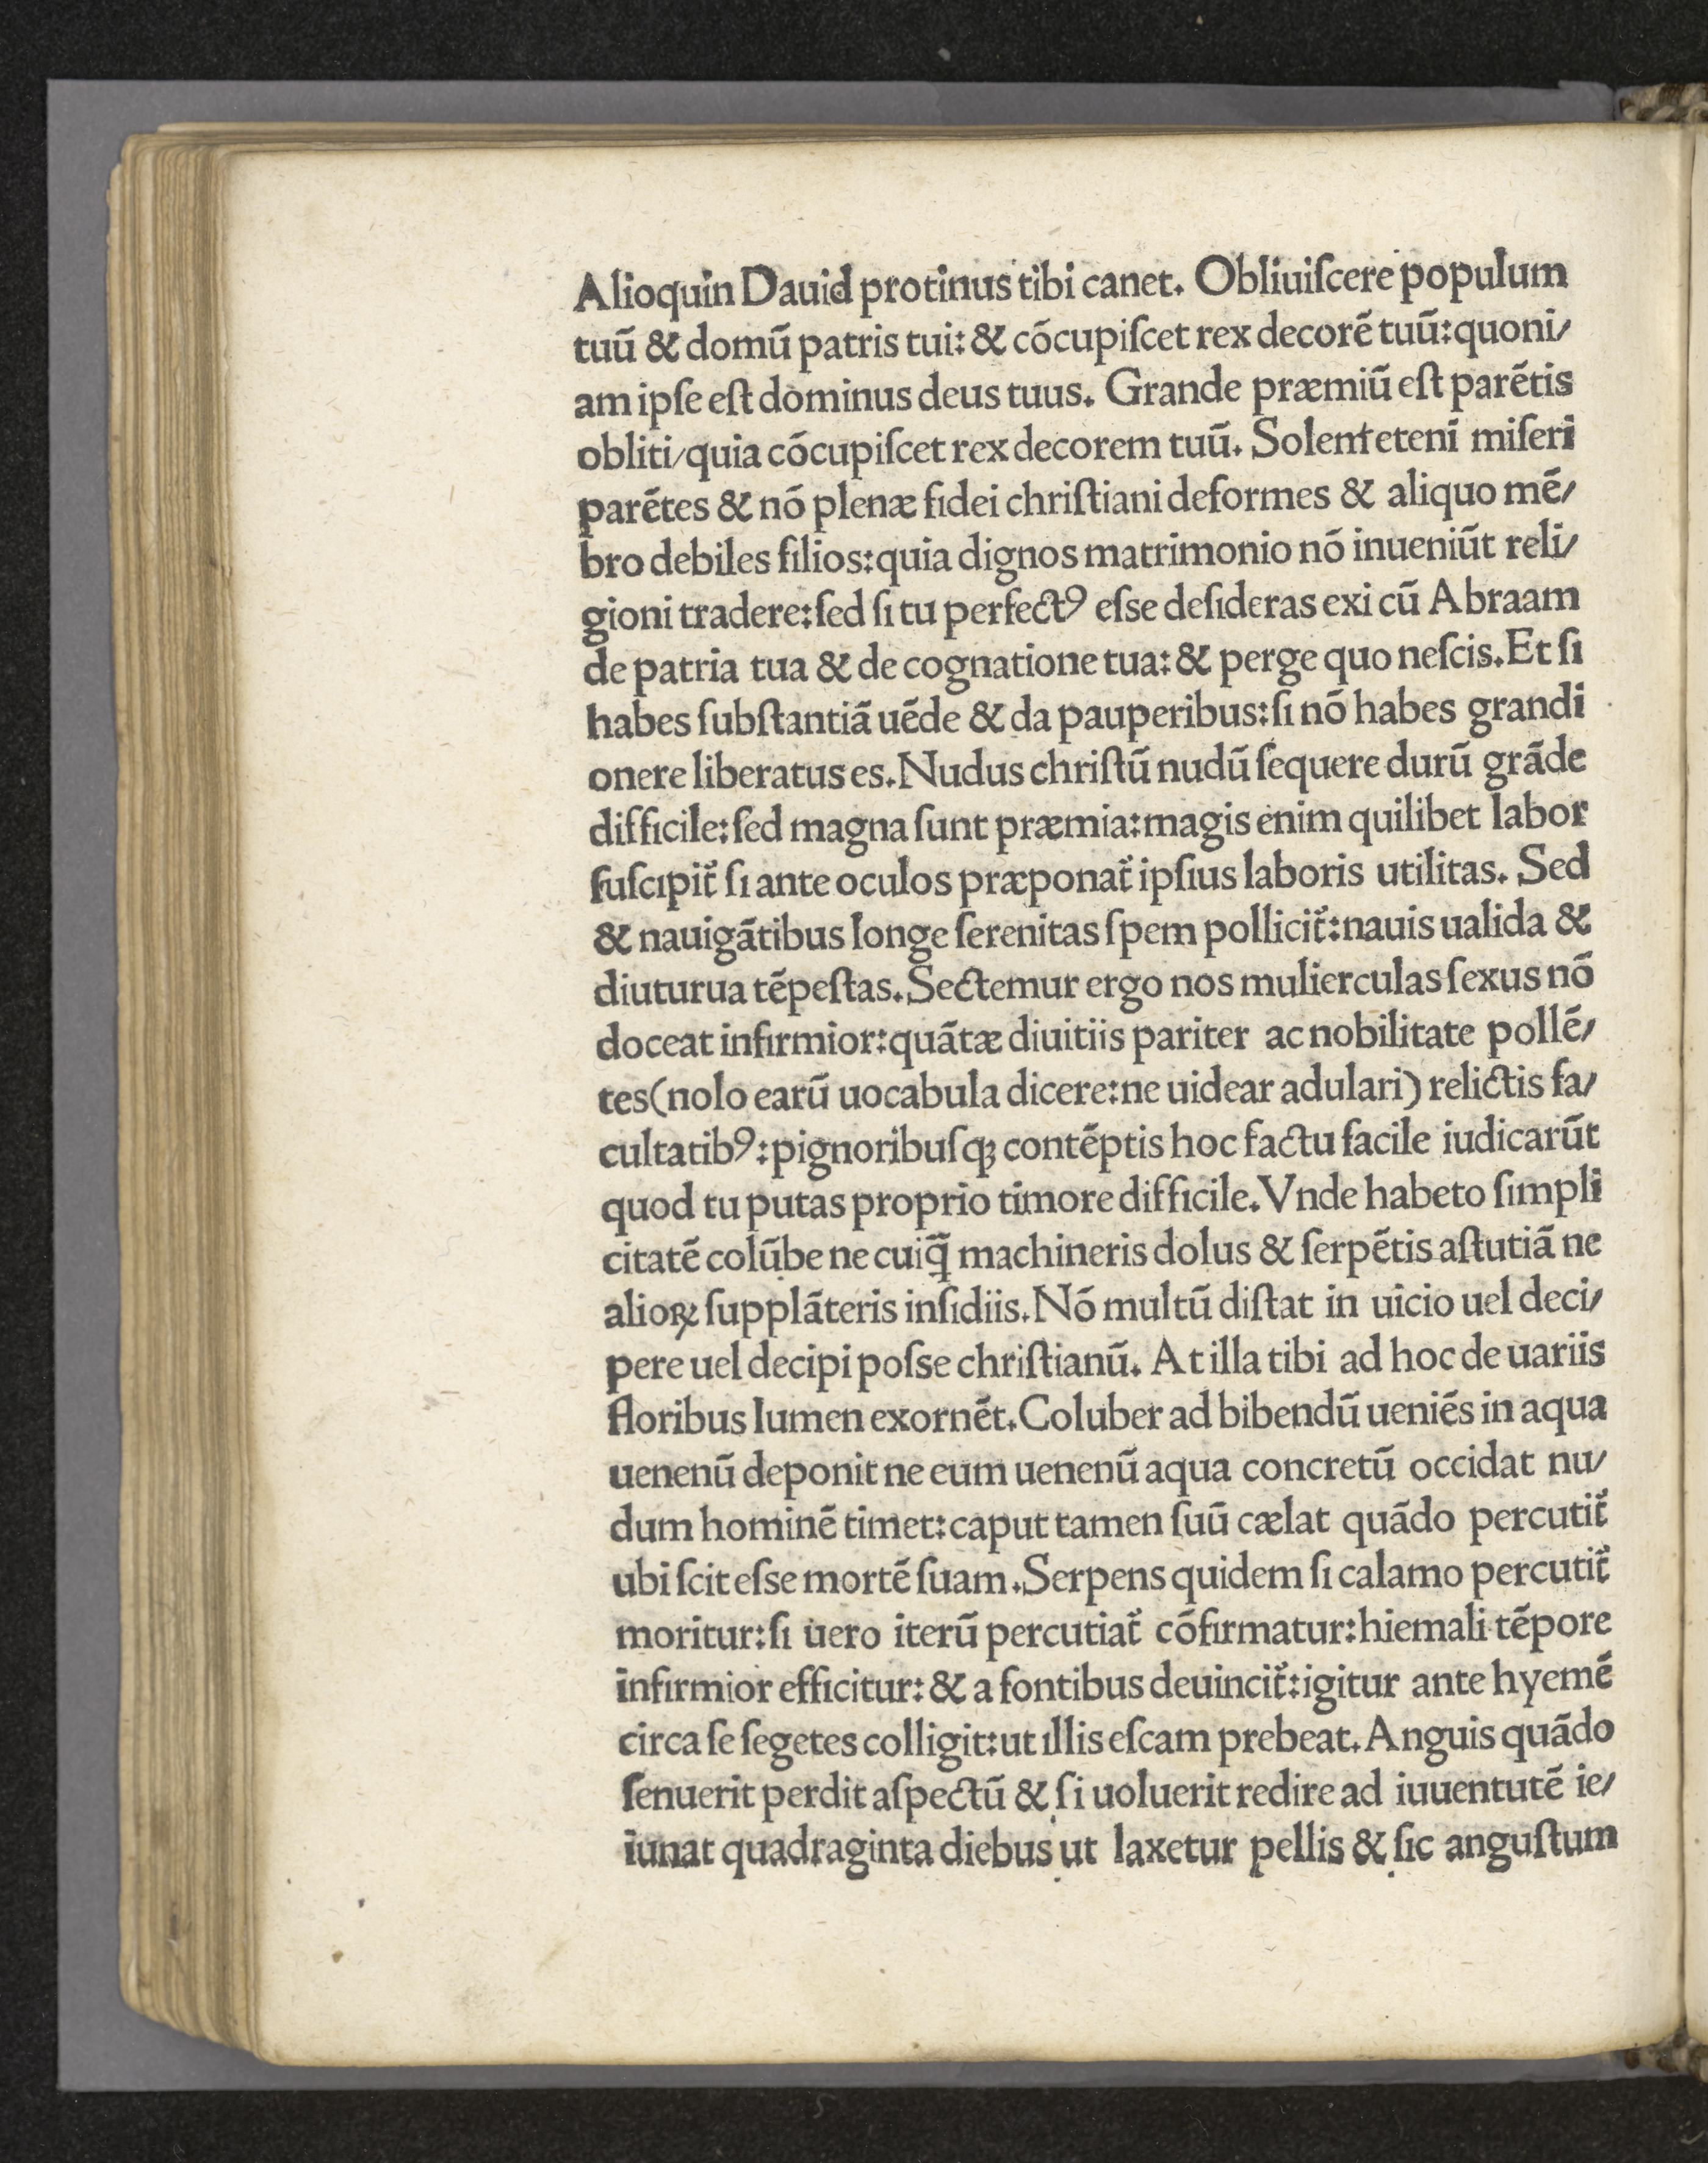 Alioquin Dauid protinus tibi canet. Obliuiſcere populum
tuū & domū patris tui: & cōcupiſcet rex decorē tuū:quoni/
am ipſe eſt dominus deus tuus. Grande præmiū eſt parētis
obliti/quia cōcupiſcet rex decorem tuū. Solent etenī miſeri
parētes & nō plenæ fidei chriſtiani deformes & aliquo mē/
bro debiles filios:quia dignos matrimonio nō inueniūt reli/
gioni tradere:ſed ſi tu perfectꝰ eſse deſideras exi cū Abraam
de patria tua & de cognatione tua: & perge quo neſcis.Et ſi
habes ſubſtantiā uēde & da pauperibus:ſi nō habes grandi
onere liberatus es.Nudus chriſtū nudū ſequere durū grāde
difficile:ſed magna ſunt præmia:magis enim quilibet labor
ſuſcipit᷑ ſi ante oculos præponat᷑ ipſius laboris utilitas. Sed
& nauigātibus longe ſerenitas ſpem pollicit᷑:nauis ualida &
diuturua tēpeſtas.Sectemur ergo nos mulierculas ſexus nō
doceat infirmior:quātæ diuitiis pariter ac nobilitate pollē/
tes(nolo earū uocabula dicere:ne uidear adulari) relictis fa/
cultatibꝰ:pignoribuſqꝫ contēptis hoc factu facile iudicarūt
quod tu putas proprio timore difficile.Vnde habeto ſimpli
citatē colūbe ne cuiq̄̃ machineris dolus & ſerpētis aſtutiā ne
alioꝝ ſupplāteris inſidiis.Nō multū diſtat in uicio uel deci/
pere uel decipi poſse chriſtianū. At illa tibi ad hoc de uariis
floribus lumen exornēt.Coluber ad bibendū ueniēs in aqua
uenenū deponit ne eum uenenū aqua concretū occidat nu/
dum hominē timet:caput tamen ſuū cælat quādo percutit᷑
ubi ſcit eſse mortē ſuam.Serpens quidem ſi calamo percutit᷑
moritur:ſi uero iterū percutiat᷑ cōfirmatur:hiemali tēpore
infirmior efficitur: & a fontibus deuincit᷑:igitur ante hyemē
circa ſe ſegetes colligit:ut illis eſcam prebeat.Anguis quādo
ſenuerit perdit aſpectū & ſi uoluerit redire ad iuuentutē ie/
iunat quadraginta diebus ut laxetur pellis & ſic anguſtum